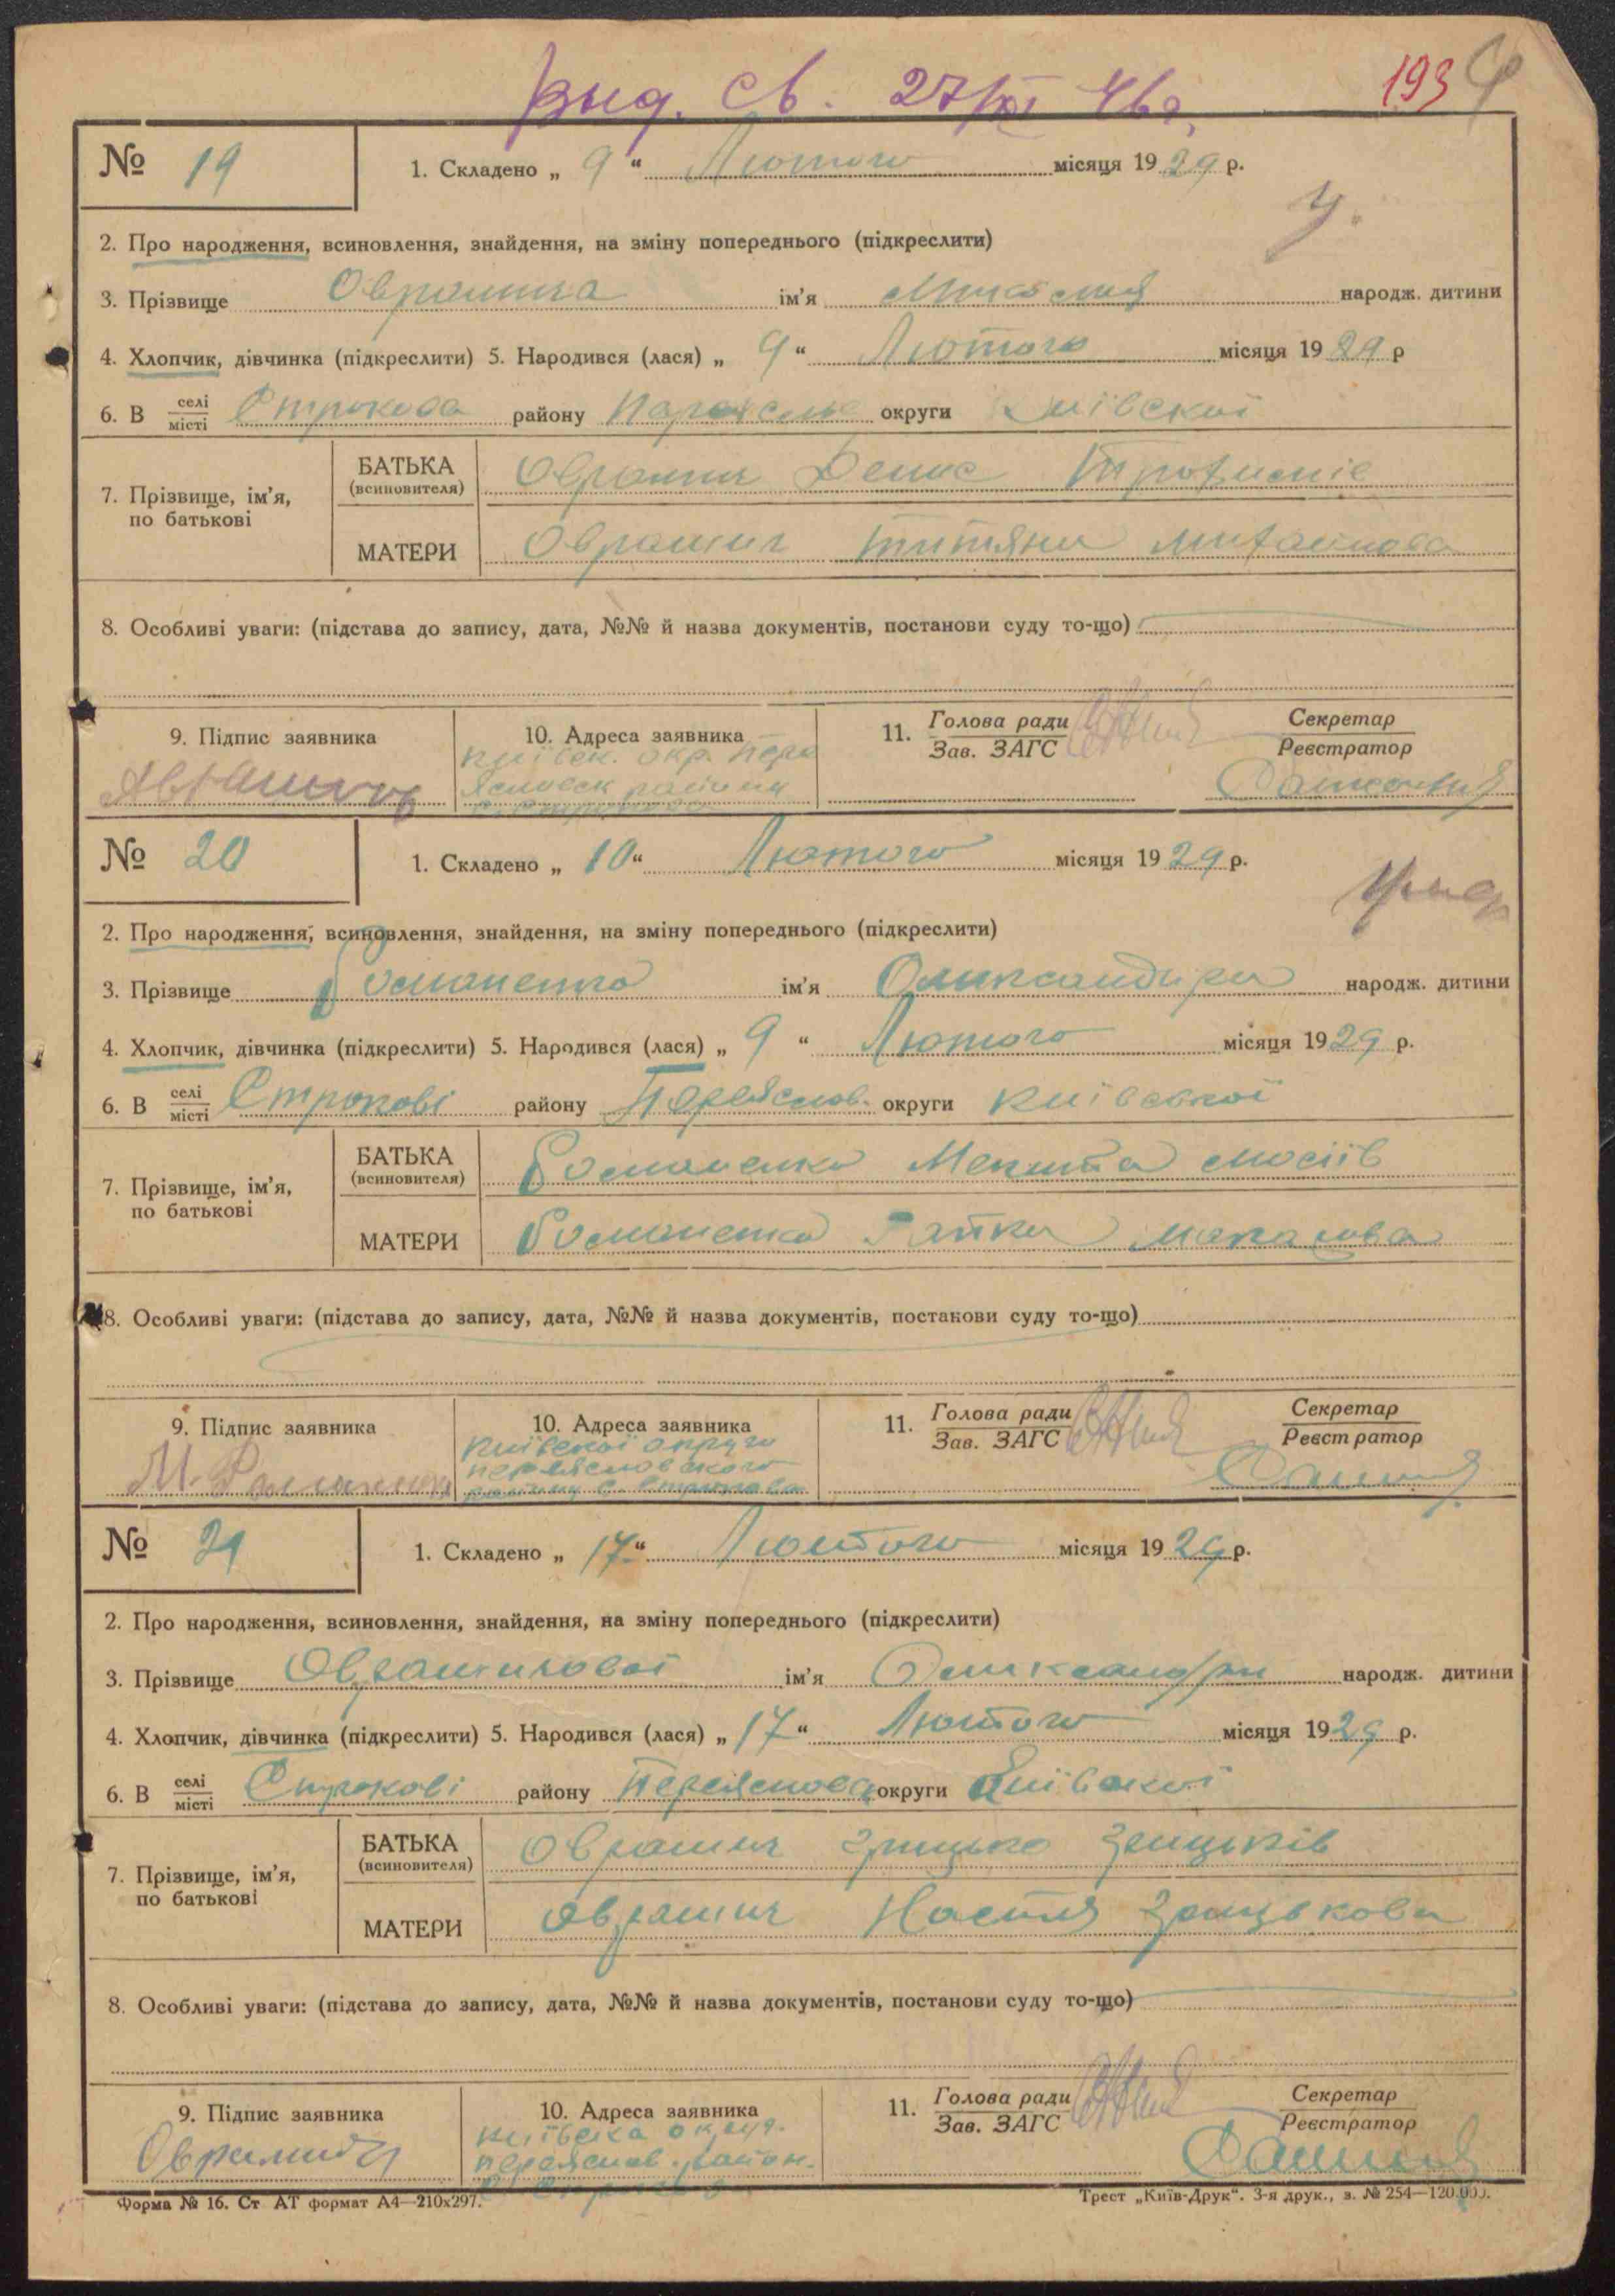 Выд. св. 27/XI 46 г.
193
№ 19
1. Складено „ 9 “ Лютого місяця 1929 р.
2. Про народження, всиновлення, знайдення, на зміну попереднього (підкреслити)
3. Прізвище Оврашича ім’я Миколая народж. дитини
4. Хлопчик, дівчинка (підкреслити) 5. Народився (лася) „ 9 “ Лютого місяця 1929 р
6. В селі місті Строкова району округи Київскої
7. Прізвище, ім’я, по батькові
БАТЬКА (всиновителя) Оврашич Денис Трохимів
МАТЕРИ Оврашич Титяни Михайлова
8. Особливі уваги: (підстава до запису, дата, №№ й назва документів, постанови суду то-що)
9. Підпис заявника
10. Адреса заявника
Київск. окр. Пере
яславск району
с. Строкова
11. Голова ради
Зав. ЗАГС
Секретар
Реєстратор
№ 20
1. Складено „ 10 “ Лютого місяця 1929 р.
2. Про народження, всиновлення, знайдення, на зміну попереднього (підкреслити)
3. Прізвище Романенко ім’я Олександра народж. дитини
4. Хлопчик, дівчинка (підкреслити) 5. Народився (лася) „ 9 “ Лютого місяця 1929 р.
6. В селі місті Строкові району Переяслов. округи Київської
7. Прізвище, ім’я, по батькові
БАТЬКА (всиновителя) Романенко Мекита Мосіїв
МАТЕРИ Романенко Гапка
8. Особливі уваги: (підстава до запису, дата, №№ й назва документів, постанови суду то-що)
9. Підпис заявника
М. Романенко
10. Адреса заявника
Київської округи
переясловского
району с. Строкова
11. Голова ради
Зав. ЗАГС
Секретар
Реєстратор
№ 21
1. Складено „ 17 “ Лютого місяця 1929 р.
2. Про народження, всиновлення, знайдення, на зміну попереднього (підкреслити)
3. Прізвище Оврашичової ім’я Олександри народж. дитини
4. Хлопчик, дівчинка (підкреслити) 5. Народився (лася) „ 17 “ Лютого місяця 1929 р.
6. В селі місті Строкові району округи Київської
7. Прізвище, ім’я, по батькові
БАТЬКА (всиновителя) Оврашич Грицько Грицьків
МАТЕРИ Оврашич Настя Грицькова
8. Особливі уваги: (підстава до запису, дата, №№ й назва документів, постанови суду то-що)
9. Підпис заявника
Оврашич
10. Адреса заявника
Київска округ.
переяслав. район.
11. Голова ради
Зав. ЗАГС
Секретар
Реєстратор
Форма № 16. Ст АТ формат А4—210x297.
Трест „Київ-Друк“. 3-я друк., з. № 254—120.000.